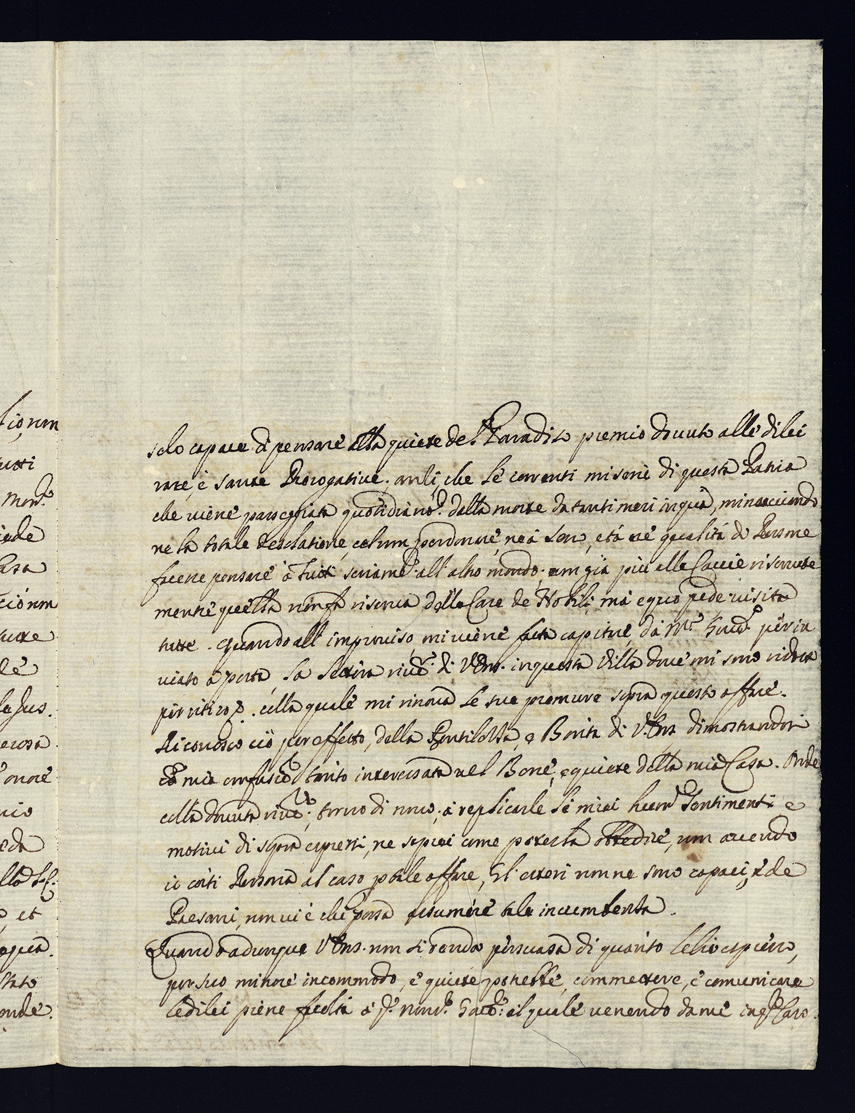 solo capace di pensare alla quiete del Paradiso premio dovuto alle di lei
rare, e sante Prerogative. anzi che le correnti miserie di questa Patria
che viene parcegiata quotidianam.e dalla morte da tanti meri in quà, minacciando
ne la totale desolatione, col non perdonare nè à sesso, età nè qualità di Persone
facene pensare à tutti seriam.e all'altro mondo. non già più alle Caccie riservate
mentre questa non fà riserva delle Case de Nobili, mà equo pede visita
tutte. Quando all'improviso mi viene fata capitare da M.r per in
viato à posta la lettera riv.ma di V. Ecc.za in questa Villa dove mi sono ridotta
per ritiro. colla quale mi rinova le sue premure sopra questo affare.
Riconosco ciò per effetto, della Gentilezza, e Bontà di V. Ecc.za dimostrandosi
con mia confusione tanto interessata nel Bene, e quiete della mia Casa. Onde
colla dovuta riv.za torno di nuovo à replicarle li miei hum.i Sentimenti e
motivi di sopra espressi, ne saprei come poterla obbedire, non avendo
io costì Persona al caso per tale affare, Gl'esteri non ne sono capaci, e de
Paesani, non vi è chi possa assumere tale incumbenza.
Quando adunque V. Ecc.za non si renda persuasa di quanto le hò espresso,
per suo minore incommodo, e quiete potrebbe, commettere, e comunicare
le di lei piene facoltà à il quale venendo da me in
tionm
tutti
Mons.
Casa
cionm
de
la sus.
erosa
onore
nio
eda
et
onde